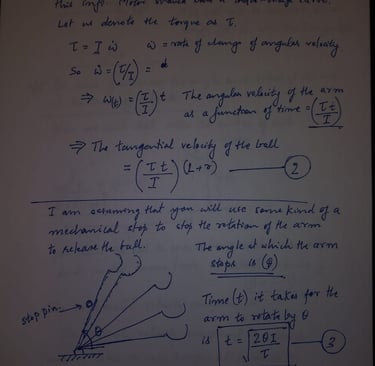 this info. Motor would have a torque-
Let us denote the torque as τ.
τ = I ω̇   ω̇ = rate of change of angular velocity
So ω̇ = (τ/I) = α
⇒ ω(t) = (τ/I) t   The angular velocity of the arm
as a function of time = (τt/I)
⇒ The tangential velocity of the ball
= (τt/I) (L+r) ——— 2
I am assuming that you will use some kind of a
mechanical stop to stop the rotation of the arm
to release the ball.
The angle at which the arm
stops is (φ)
stop pin
θ
Time (t) it takes for the
arm to rotate by θ
is t = √(2θI/τ) — 3